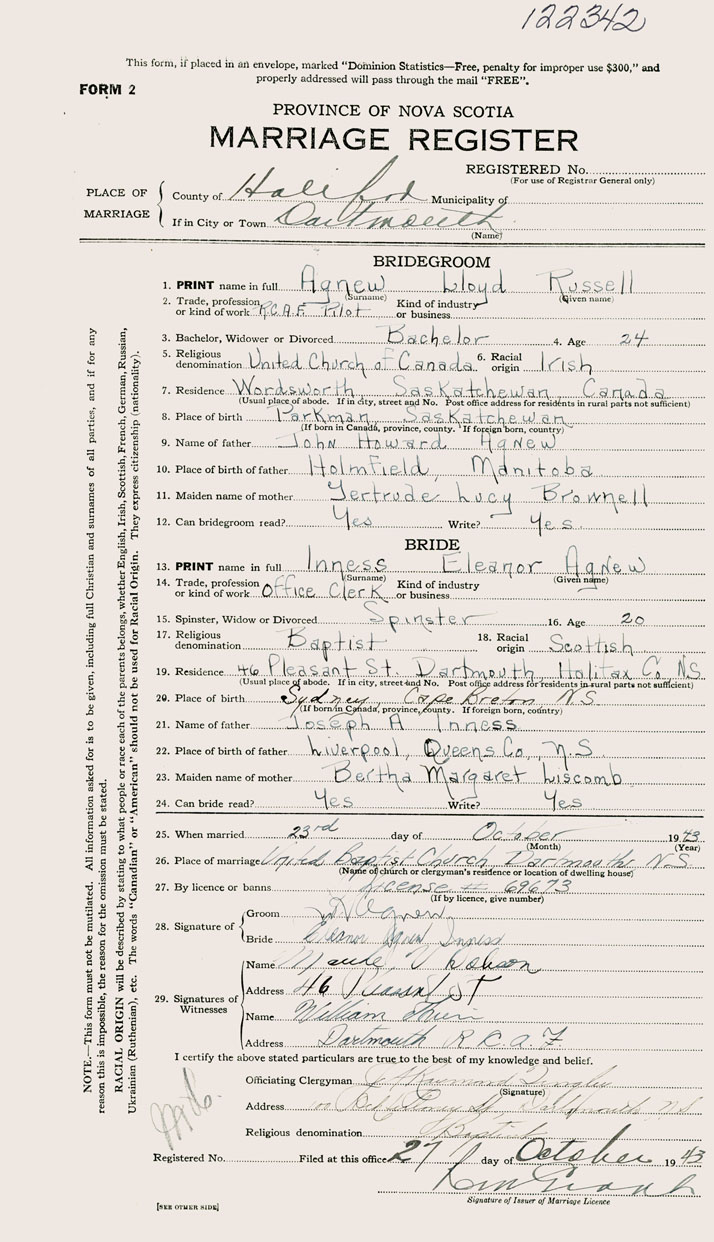 122342
This form, if placed in an envelope, marked "Dominion Statistics—Free, penalty for improper use $300," and
properly addressed will pass through the mail "FREE".
FORM 2
PROVINCE OF NOVA SCOTIA
MARRIAGE REGISTER
REGISTERED No.
(For use of Registrar General only)
PLACE OF MARRIAGE
County of Halifax Municipality of
If in City or Town Dartmouth
(Name)
BRIDEGROOM
1. PRINT name in full Agnew Lloyd Russell
(Surname) (Given name)
2. Trade, profession or kind of work R.C.A.F. Pilot Kind of industry or business
3. Bachelor, Widower or Divorced Bachelor 4. Age 24
5. Religious denomination United Church of Canada 6. Racial origin Irish
7. Residence Wordsworth, Saskatchewan, Canada
(Usual place of abode. If in city, street and No. Post office address for residents in rural parts not sufficient)
8. Place of birth Parkman, Saskatchewan
(If born in Canada, province, county. If foreign born, country)
9. Name of father John Howard Agnew
10. Place of birth of father Holmfield, Manitoba
11. Maiden name of mother Gertrude Lucy Brownell
12. Can bridegroom read? Yes Write? Yes
BRIDE
13. PRINT name in full Inness Eleanor Agnew
(Surname) (Given name)
14. Trade, profession or kind of work Office Clerk Kind of industry or business
15. Spinster, Widow or Divorced Spinster 16. Age 20
17. Religious denomination Baptist 18. Racial origin Scottish
19. Residence 46 Pleasant St. Dartmouth, Halifax Co, N.S.
(Usual place of abode. If in city, street and No. Post office address for residents in rural parts not sufficient)
20. Place of birth Sydney Cape Breton N.S.
(If born in Canada, province, county. If foreign born, country)
21. Name of father Joseph A Inness
22. Place of birth of father Liverpool, Queens Co, N.S
23. Maiden name of mother Bertha Margaret Liscomb
24. Can bride read? Yes Write? Yes
25. When married 23rd day of October 1943
(Month) (Year)
26. Place of marriage United Baptist Church, Dartmouth N.S.
(Name of church or clergyman's residence or location of dwelling house)
27. By licence or banns License # 69673
(If by licence, give number)
28. Signature of
Groom Agnew
Bride Inness
29. Signatures of Witnesses
Name Maude
Address 46 Pleasant ST
Name William
Address Dartmouth R.C.A.F
I certify the above stated particulars are true to the best of my knowledge and belief.
Officiating Clergyman
(Signature)
Address Dartmouth NS
Religious denomination Baptist
Registered No. Filed at this office 27 day of October 1943
Signature of Issuer of Marriage Licence
[SEE OTHER SIDE]
NOTE.—This form must not be mutilated. All information asked for is to be given, including full Christian and surnames of all parties, and if for any
reason this is impossible, the reason for the omission must be stated.
RACIAL ORIGIN will be described by stating to what people or race each of the parents belongs, whether English, Irish, Scottish, French, German, Russian,
Ukrainian (Ruthenian), etc. The words "Canadian" or "American" should not be used for Racial Origin. They express citizenship (nationality).